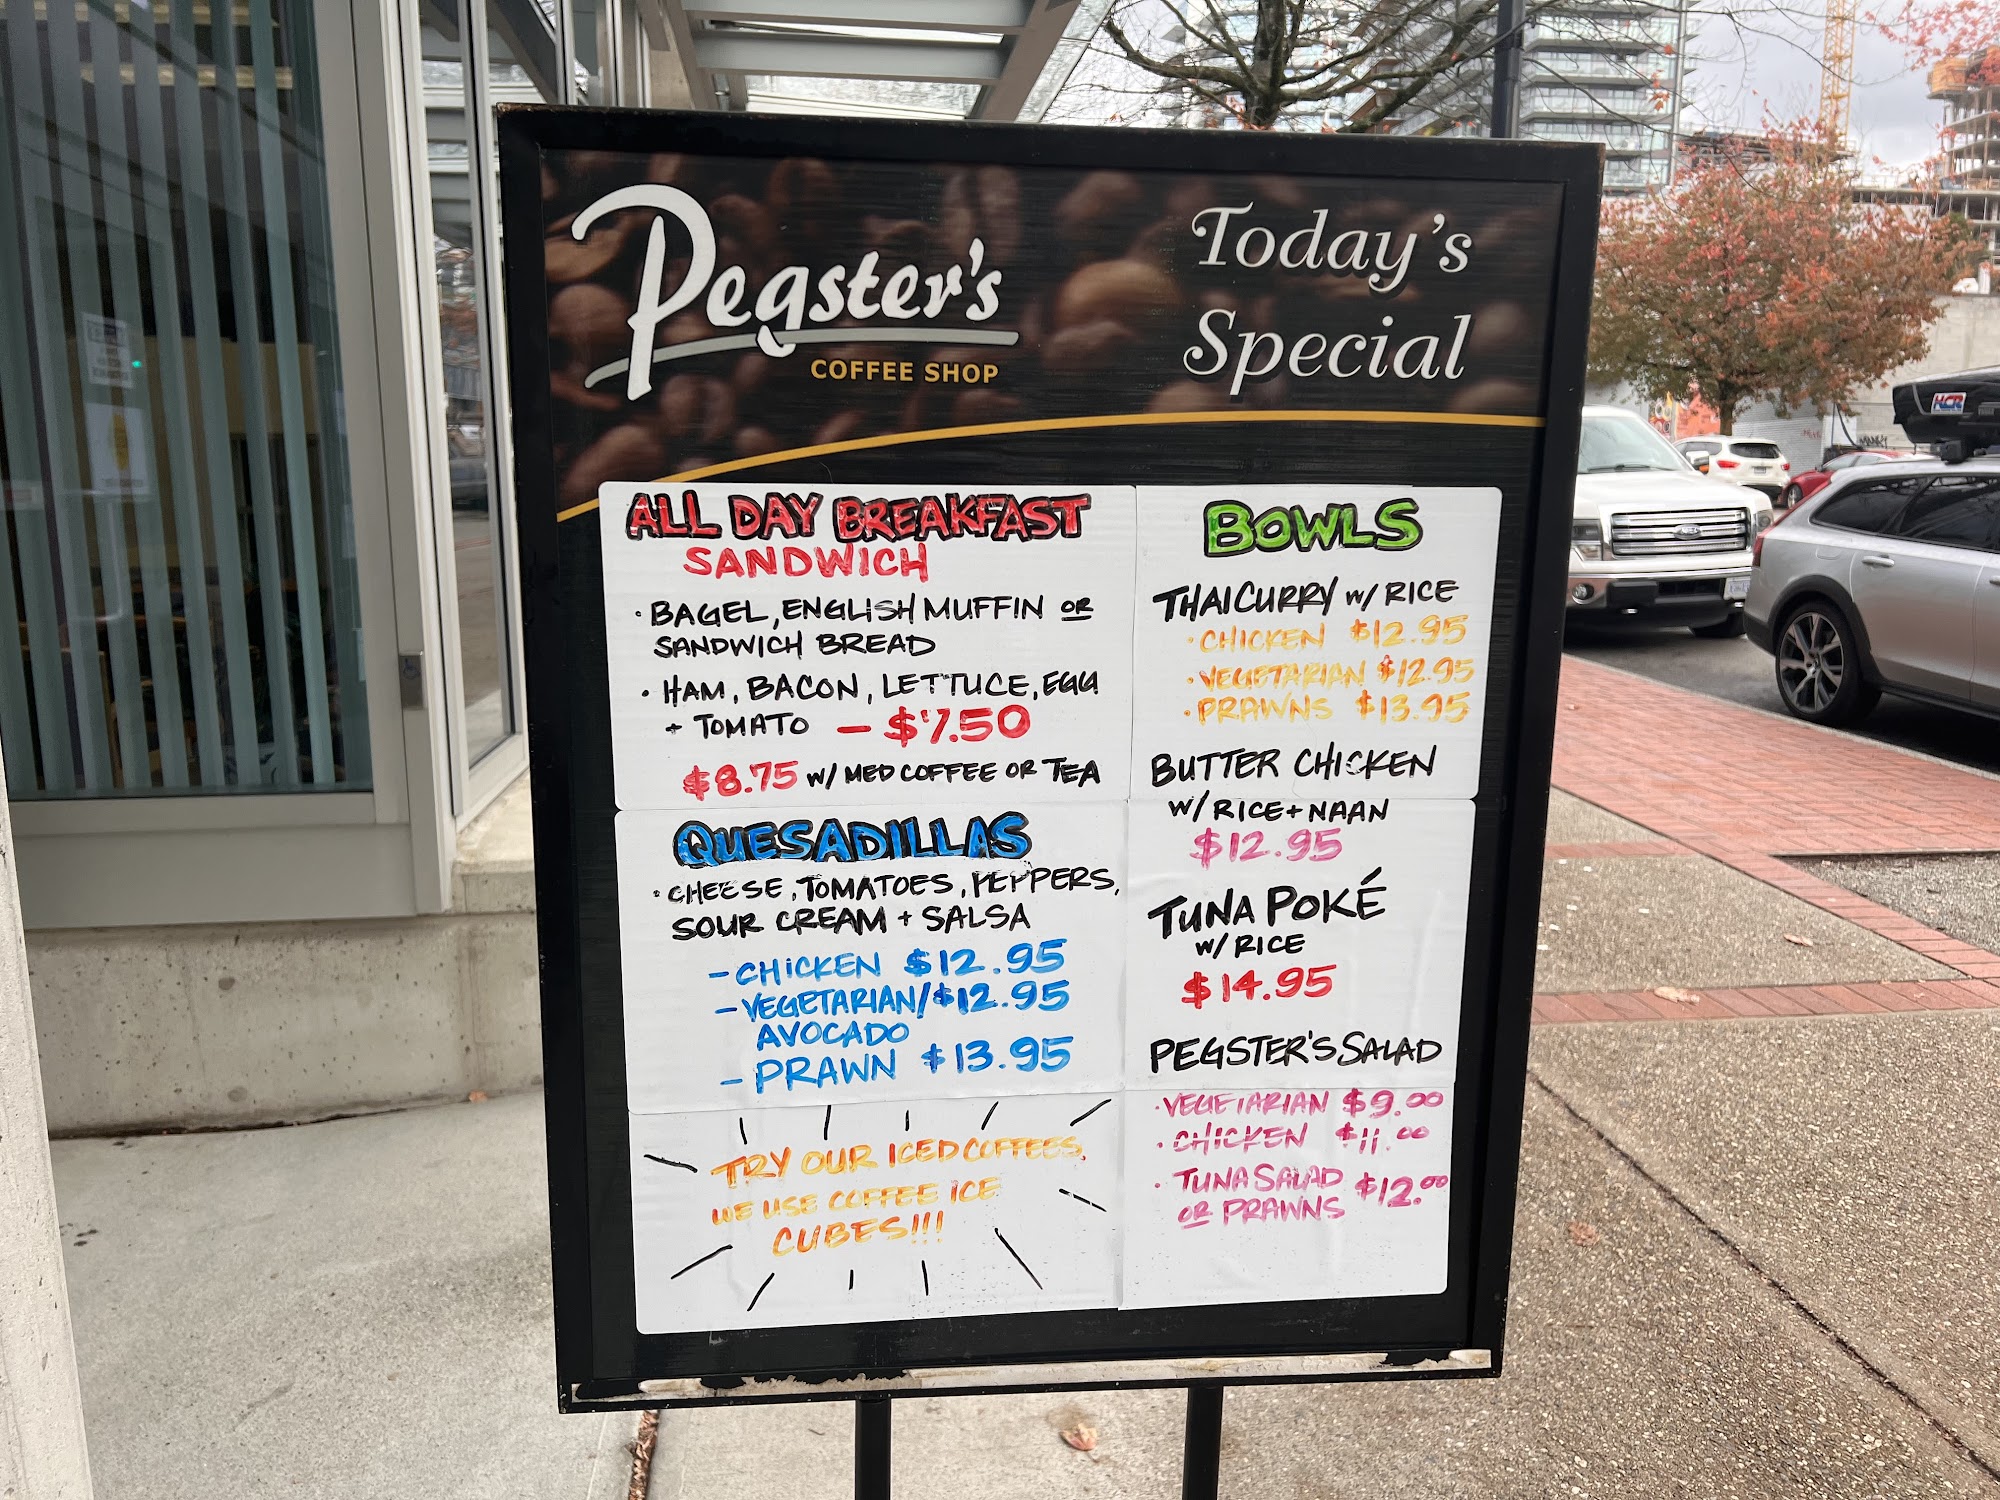 Pegster's
COFFEE SHOP
Today's
Special
ALL DAY BREAKFAST
SANDWICH
· BAGEL, ENGLISH MUFFIN OR
SANDWICH BREAD
· HAM, BACON, LETTUCE, EGG
+ TOMATO — $7.50
$8.75 w/ MED COFFEE OR TEA
QUESADILLAS
· CHEESE, TOMATOES, PEPPERS,
SOUR CREAM + SALSA
- CHICKEN $12.95
- VEGETARIAN/ $12.95
AVOCADO
- PRAWN $13.95
TRY OUR ICED COFFEES,
WE USE COFFEE ICE
CUBES!!!
BOWLS
THAI CURRY w/ RICE
· CHICKEN $12.95
· VEGETARIAN $12.95
· PRAWNS $13.95
BUTTER CHICKEN
w/ RICE + NAAN
$12.95
TUNA POKÉ
w/ RICE
$14.95
PEGSTER'S SALAD
· VEGETARIAN $9.00
· CHICKEN $11.00
· TUNA SALAD $12.00
OR PRAWNS